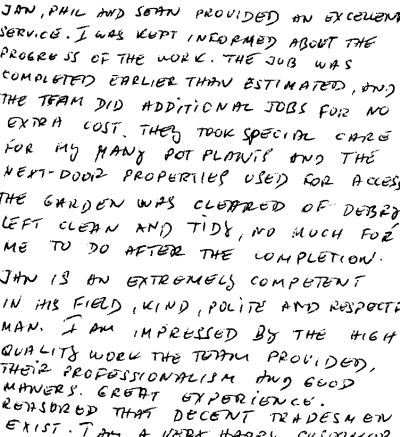 JAN, PHIL AND SEAN PROVIDED AN EXCELLEN
SERVICE. I WAS KEPT INFORMED ABOUT THE
PROGRESS OF THE WORK. THE JOB WAS
COMPLETED EARLIER THAN ESTIMATED, AND
THE TEAM DID ADDITIONAL JOBS FOR NO
EXTRA COST. THEY TOOK SPECIAL CARE
FOR MY MANY POT PLANTS AND THE
NEXT-DOOR PROPERTIES USED FOR ACCESS
THE GARDEN WAS CLEARED OF DEBRY
LEFT CLEAN AND TIDY, NO MUCH FOR
ME TO DO AFTER THE COMPLETION.
JAN IS AN EXTREMELY COMPETENT
IN HIS FIELD, KIND, POLITE AND RESPECTF
MAN. I AM IMPRESSED BY THE HIGH
QUALITY WORK THE TEAM PROVIDED,
THEIR PROFESSIONALISM AND GOOD
MANERS. GREAT EXPERIENCE.
REASORED THAT DECENT TRADESMEN
EXIST. I AM A VERY HAPPY CUSTOMER